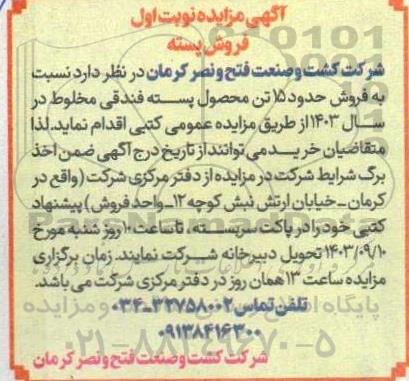 آگهی مزایده نوبت اول
فروش پسته
شرکت کشت و صنعت فتح و نصر کرمان در نظر دارد نسبت
به فروش حدود ۱۵ تن محصول پسته فندقی مخلوط در
سال ۱۴۰۳ از طریق مزایده عمومی کتبی اقدام نماید. لذا
متقاضیان خرید می توانند از تاریخ درج آگهی ضمن اخذ
برگ شرایط شرکت در مزایده از دفتر مرکزی شرکت (واقع در
کرمان - خیابان ارتش نبش کوچه ۱۲ - واحد فروش) پیشنهاد
کتبی خود را در پاکت سربسته، تا ساعت ۱۰ روز شنبه مورخ
۱۴۰۳/۰۹/۱۰ تحویل دبیرخانه شرکت نمایند. زمان برگزاری
مزایده ساعت ۱۳ همان روز در دفتر مرکزی شرکت می باشد.
تلفن تماس ۳۲۷۵۸۰۰۲-۰۳۴
۰۹۱۳۸۴۱۶۳۰۰
شرکت کشت و صنعت فتح و نصر کرمان
۰۲۱-۸۸۳۴۹۶۷۰-۵